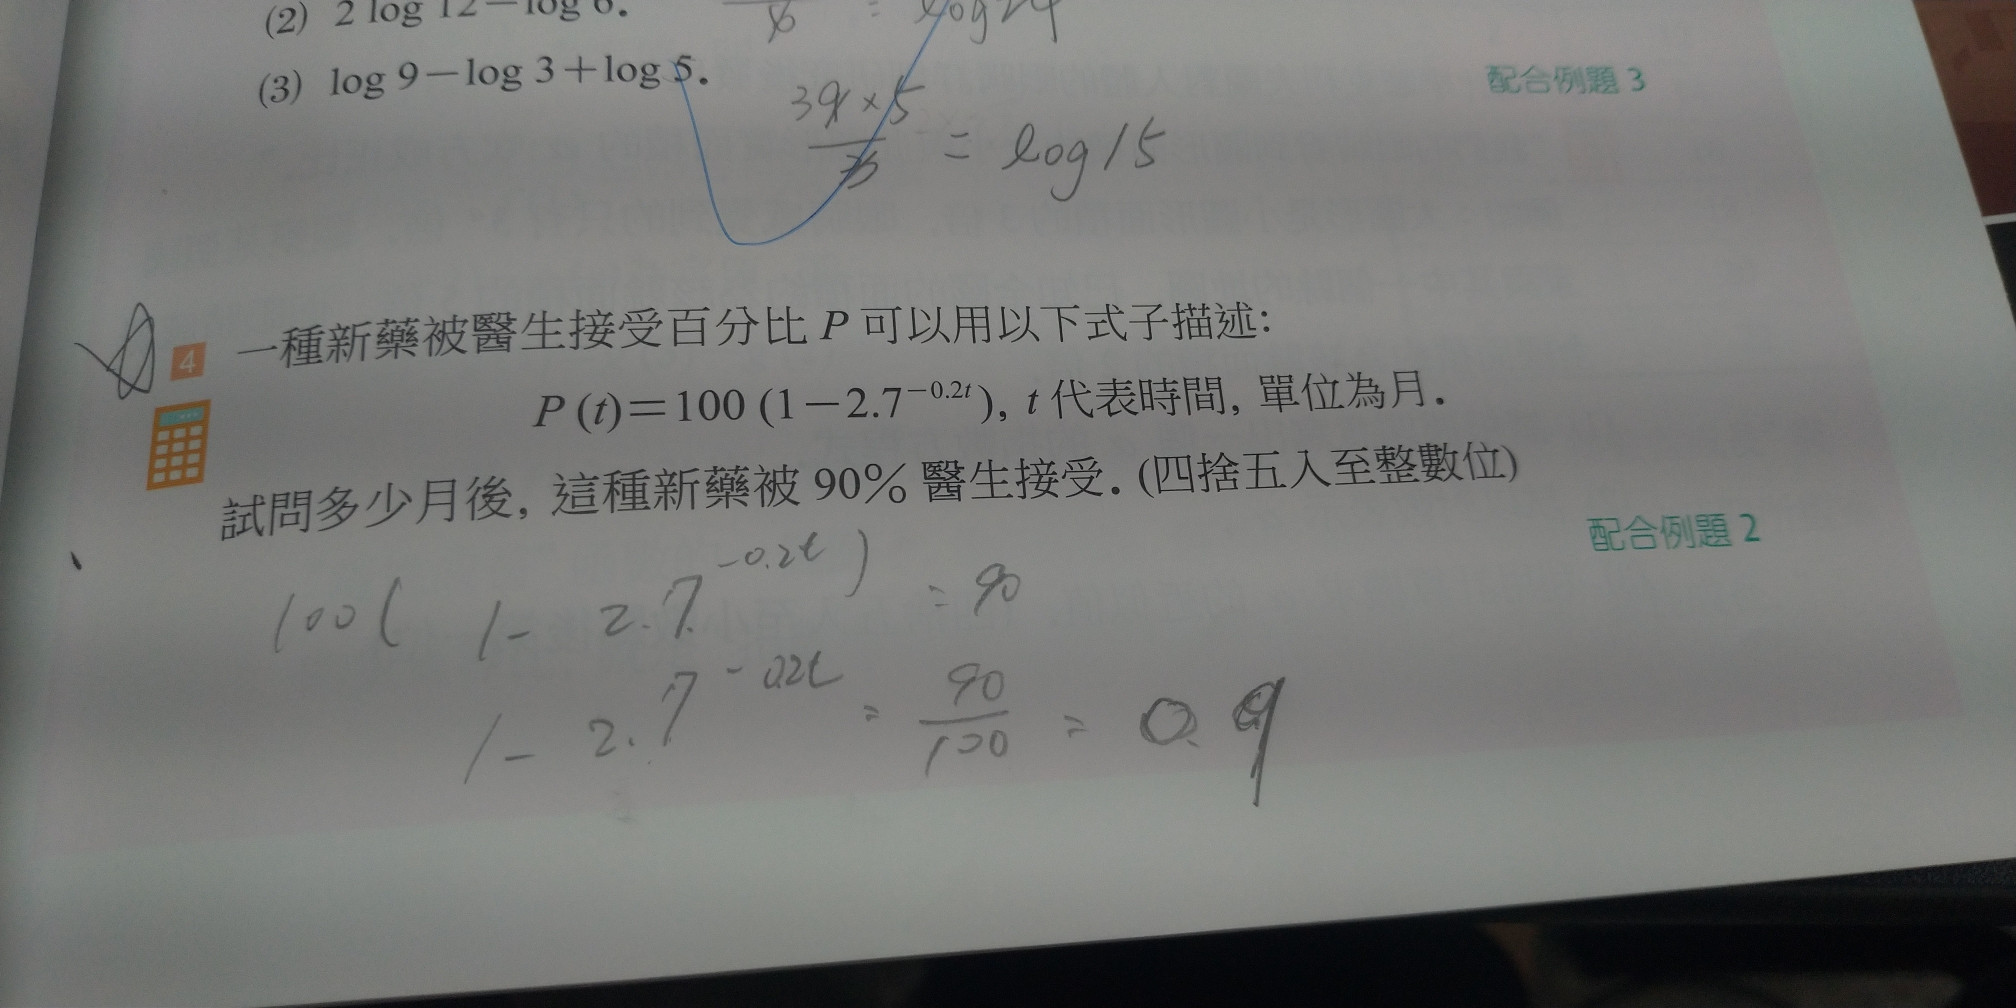 (2) 2 log 12－log 6.
6 = log24
(3) log 9－log 3＋log 5.
配合例題 3
39×5/3 = log15
4 一種新藥被醫生接受百分比 P 可以用以下式子描述:
P (t)＝100 (1－2.7^－0.2t), t 代表時間, 單位為月.
試問多少月後, 這種新藥被 90% 醫生接受. (四捨五入至整數位)
配合例題 2
100( 1- 2.7^-0.2t ) = 90
1- 2.7^-0.2t = 90/100 = 0.9